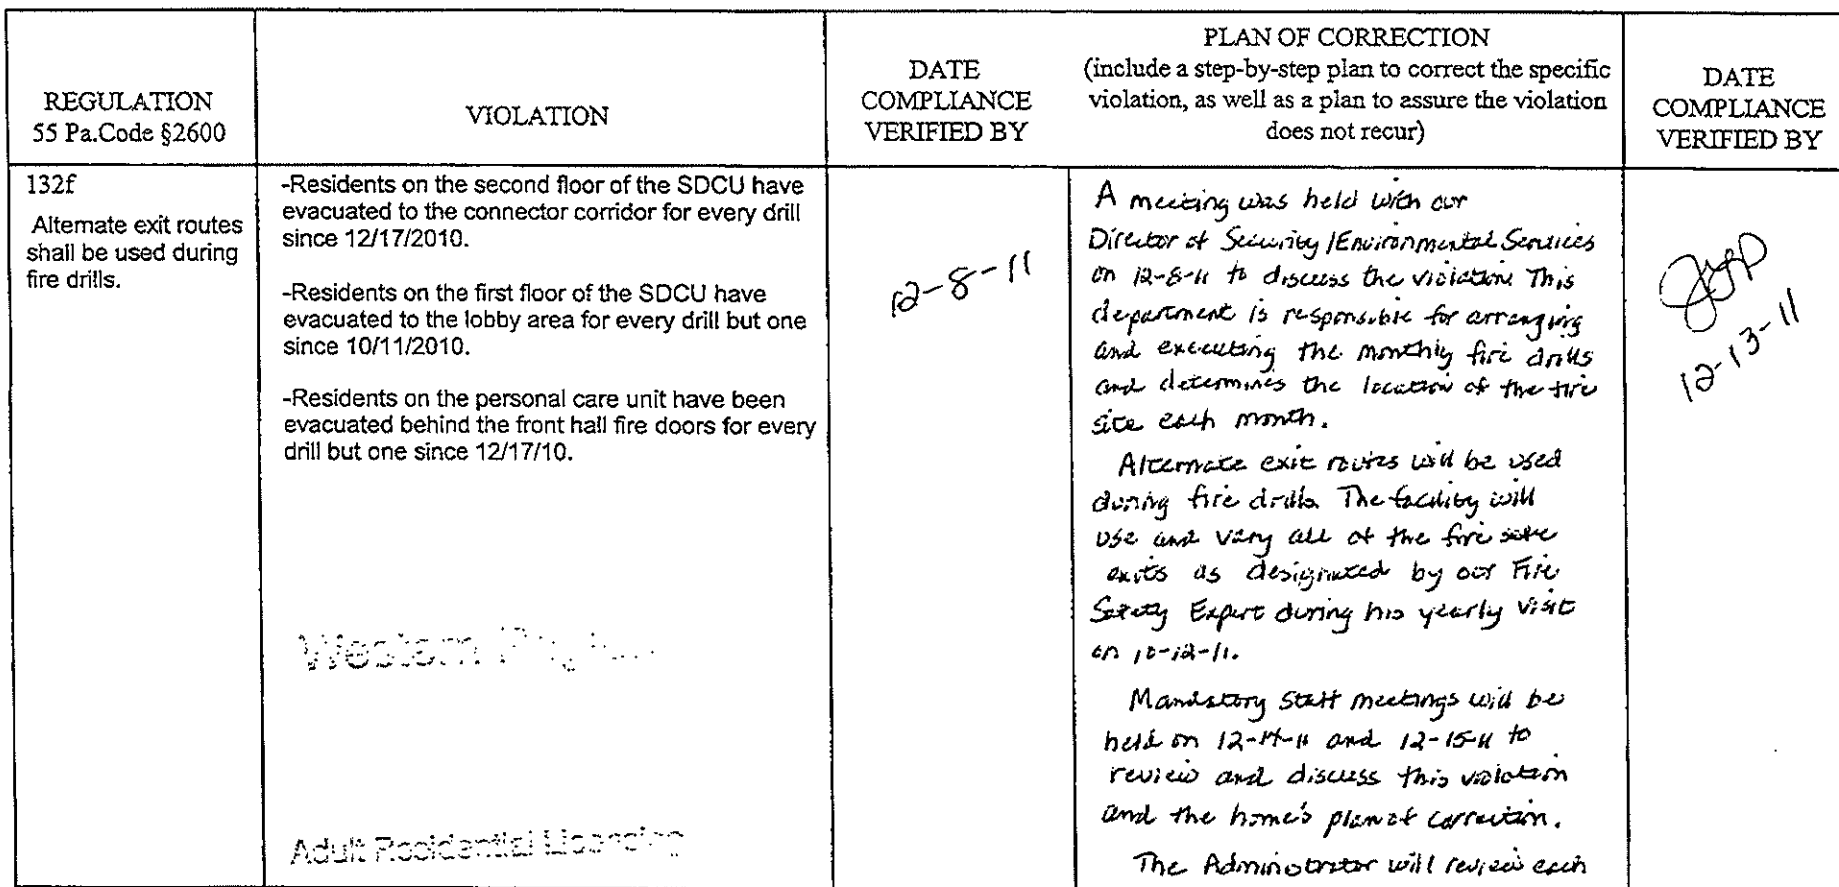 REGULATION
55 Pa.Code §2600
VIOLATION
DATE
COMPLIANCE
VERIFIED BY
PLAN OF CORRECTION
(include a step-by-step plan to correct the specific
violation, as well as a plan to assure the violation
does not recur)
DATE
COMPLIANCE
VERIFIED BY
132f
Alternate exit routes
shall be used during
fire drills.
-Residents on the second floor of the SDCU have
evacuated to the connector corridor for every drill
since 12/17/2010.
-Residents on the first floor of the SDCU have
evacuated to the lobby area for every drill but one
since 10/11/2010.
-Residents on the personal care unit have been
evacuated behind the front hall fire doors for every
drill but one since 12/17/10.
Western
Adult Residential Licensing
12-8-11
A meeting was held with our
Director of Security/Environmental Services
on 12-8-11 to discuss the violation. This
department is responsible for arranging
and executing the monthly fire drills
and determines the location of the fire
site each month.
Alternate exit routes will be used
during fire drills. The facility will
use and vary all of the fire safe
exits as designated by our Fire
Safety Expert during his yearly visit
on 10-12-11.
Mandatory staff meetings will be
held on 12-14-11 and 12-15-11 to
review and discuss this violation
and the home's plan of correction.
The Administrator will review each
12-13-11